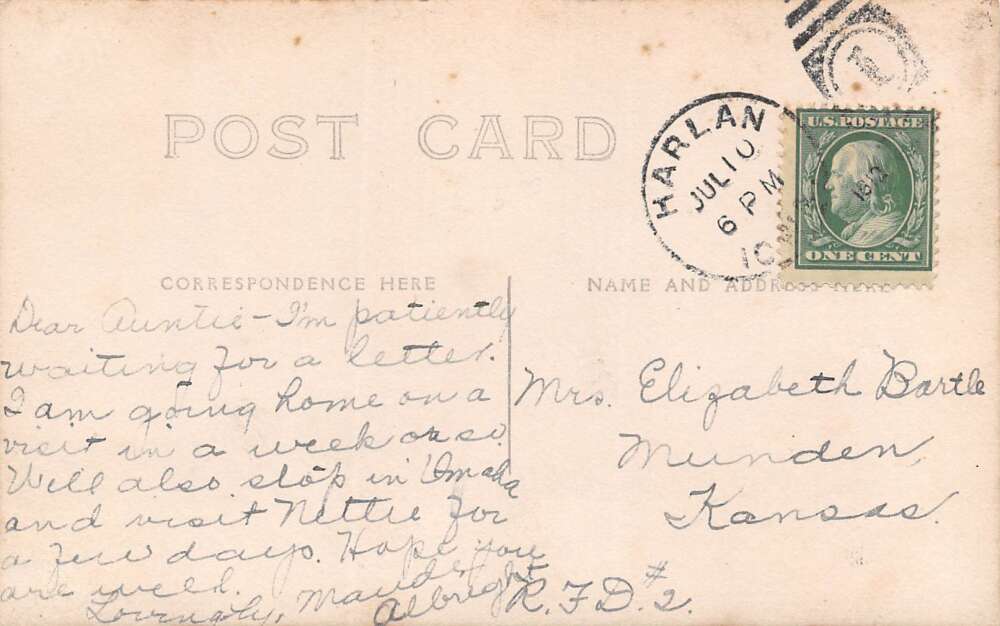 POST CARD
HARLAN
JUL 10
6 PM
1912
U.S. POSTAGE
ONE CENT
CORRESPONDENCE HERE
Dear Auntie - I'm patiently
waiting for a letter.
I am going home on a
visit in a week or so.
Will also stop in Omaha
and visit Nettie for
a few days. Hope you
are well.
Lovingly, Maude
Albright
NAME AND ADDRESS HERE
Mrs. Elizabeth Bartle
Munden,
Kansas.
R.F.D. #2.